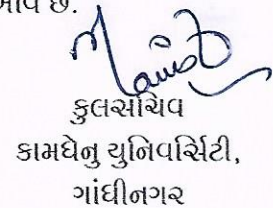 આવે છે.
કુલસચિવ
કામધેનુ યુનિવર્સિટી,
ગાંધીનગર